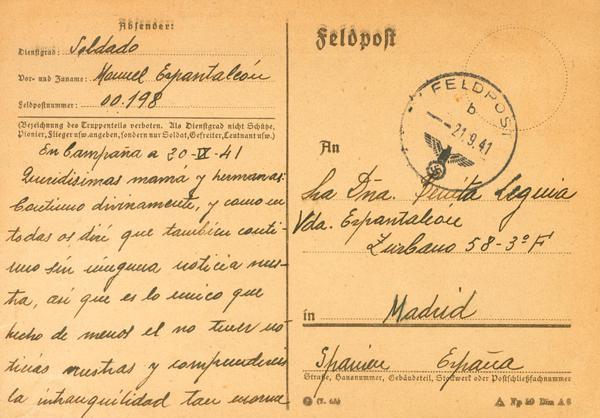 Absender:
Dienstgrad: Soldado
Vor- und Zuname: Manuel Espantaleón
Feldpostnummer: 00.198
(Bezeichnung des Truppenteils verboten. Als Dienstgrad nicht Schütze,
Pionier, Flieger usw. angeben, sondern nur Soldat, Gefreiter, Leutnant usw.)
En Campaña a 20-IX-41
Queridisimas mama y hermanas:
Continuo divinamente, y como en
todas os diré que tambien conti-
nuo sin ninguna noticia vues-
tra, asi que es lo unico que
hecho de menos el no tener no-
ticias vuestras y comprendereis
la intranquilidad tan enorme
Feldpost
FELDPOST
b
-- 21.9.41
An
Sra Dña. Leguia
Vda. Espantaleon
Zurbano 58-3º F
in Madrid
Spanien España
Straße, Hausnummer, Gebäudeteil, Stockwerk oder Postschließfachnummer
Np 50 Din A 6